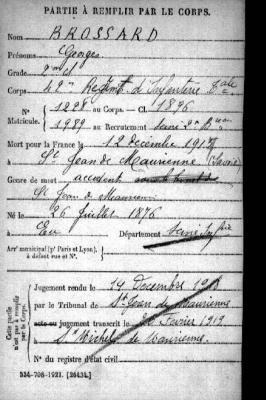 PARTIE À REMPLIR PAR LE CORPS.
Nom BROSSARD
Prénoms Georges
Grade 2me cl
Corps 42me Regiment d'Infanterie
N° 1228 au Corps. — Cl. 1896
Matricule. 1989 au Recrutement Seine 2e Bau
Mort pour la France le 12 décembre 1917
à St Jean de Maurienne (Savoie)
Genre de mort accident
St Jean de Maurienne
Né le 26 Juillet 1876
à Eu Département Seine Infre
Arrt municipal (pr Paris et Lyon),
à défaut rue et N°.
Cette partie
n'est pas à remplir
par le Corps.
Jugement rendu le 14 Decembre 1918
par le Tribunal de St Jean de Maurienne
acte ou jugement transcrit le 20 Fevrier 1919
à St Michel de Maurienne
N° du registre d'état civil
534-708-1921. [26434.]